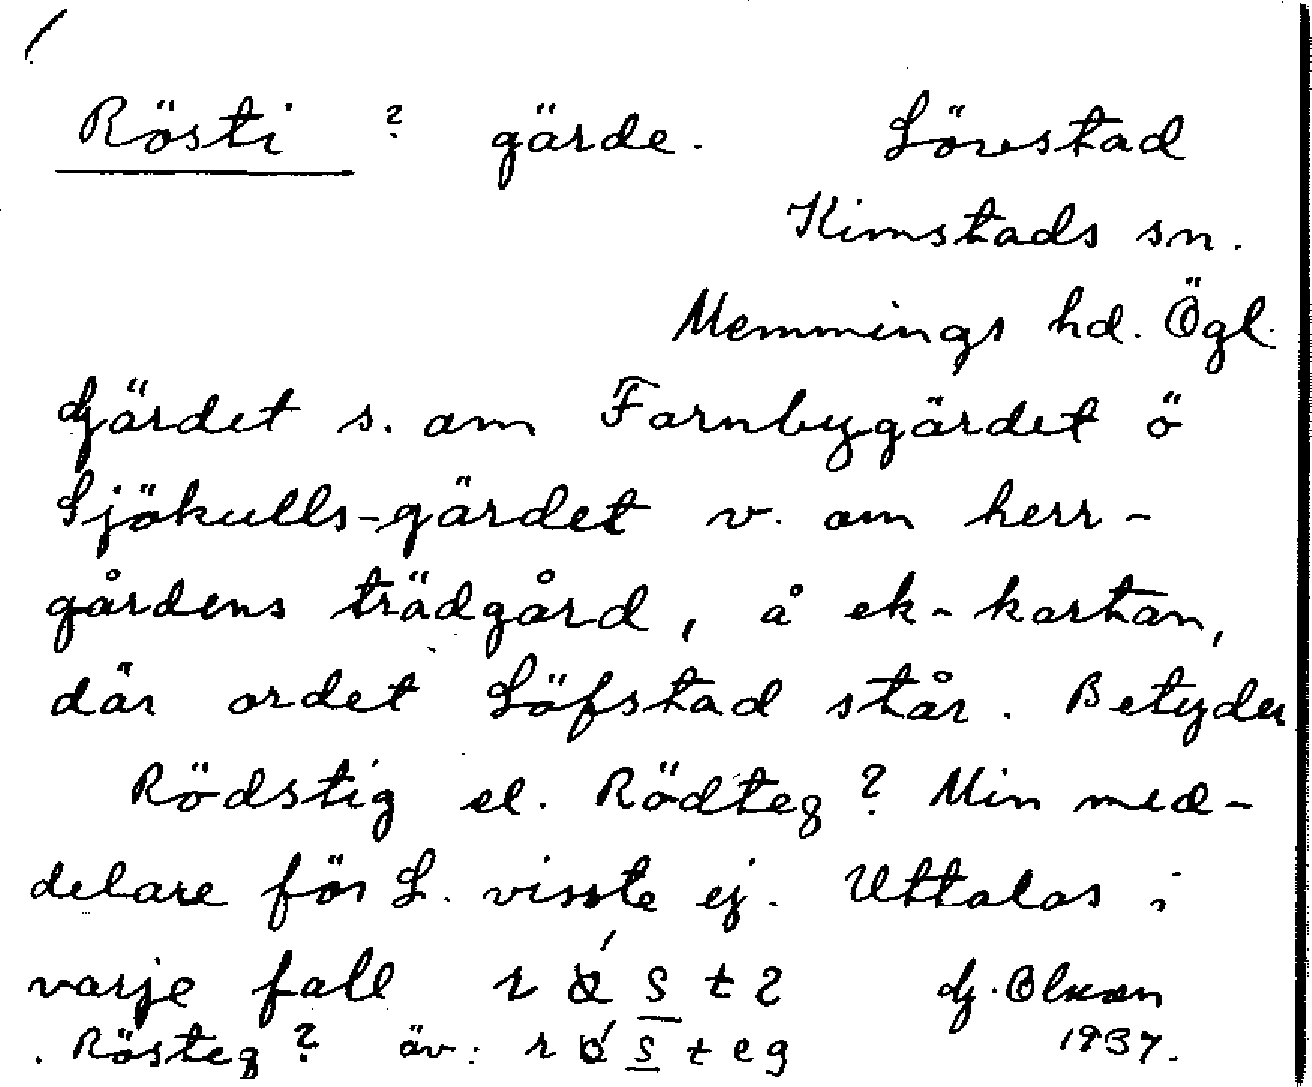 Rösti ? gärde. Lövstad
Kimstads sn.
Memmings hd. Ögl.
Gärdet s. om Farnbygärdet ö
Sjökulls-gärdet v. om herr-
gårdens trädgård, å ek-kartan,
där ordet Löfstad står. Betyder
Rödstig el. Rödteg? Min med-
delare för L. visste ej. Uttalas i
varje fall
G. Olsson
Rösteg? äv:
1937.